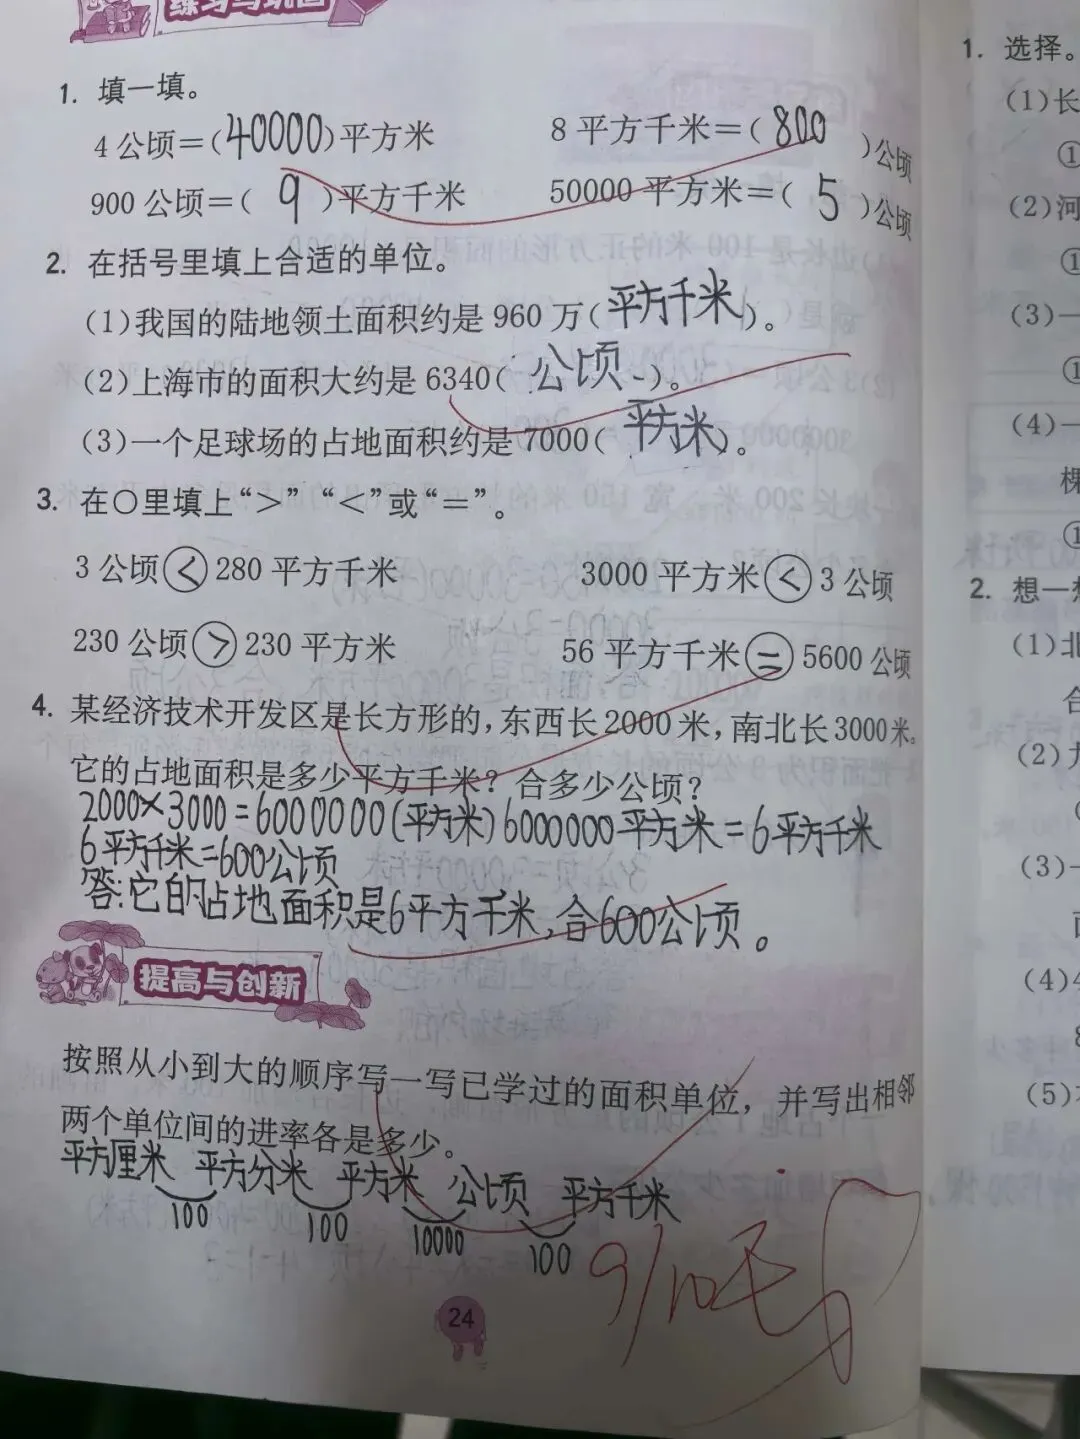 练习与巩固
1. 填一填。
4公顷=(40000)平方米 8平方千米=(800)公顷
900公顷=(9)平方千米 50000平方米=(5)公顷
2. 在括号里填上合适的单位。
(1)我国的陆地领土面积约是960万(平方千米)。
(2)上海市的面积大约是6340(公顷)。
(3)一个足球场的占地面积约是7000(平方米)。
3. 在○里填上“>”“<”或“=”。
3公顷<280平方千米 3000平方米<3公顷
230公顷>230平方米 56平方千米=5600公顷
4. 某经济技术开发区是长方形的,东西长2000米,南北长3000米。
它的占地面积是多少平方千米?合多少公顷?
2000×3000=6000000(平方米)6000000平方米=6平方千米
6平方千米=600公顷
答:它的占地面积是6平方千米,合600公顷。
提高与创新
按照从小到大的顺序写一写已学过的面积单位,并写出相邻
两个单位间的进率各是多少。
平方厘米 平方分米 平方米 公顷 平方千米
100 100 10000 100
9/10
24
1. 选择。
(1)长
①
(2)河
①
(3)一
①
(4)一
棵
①
2. 想一想
(1)北
合
(2)
(3)一
(4)4
8
(5)